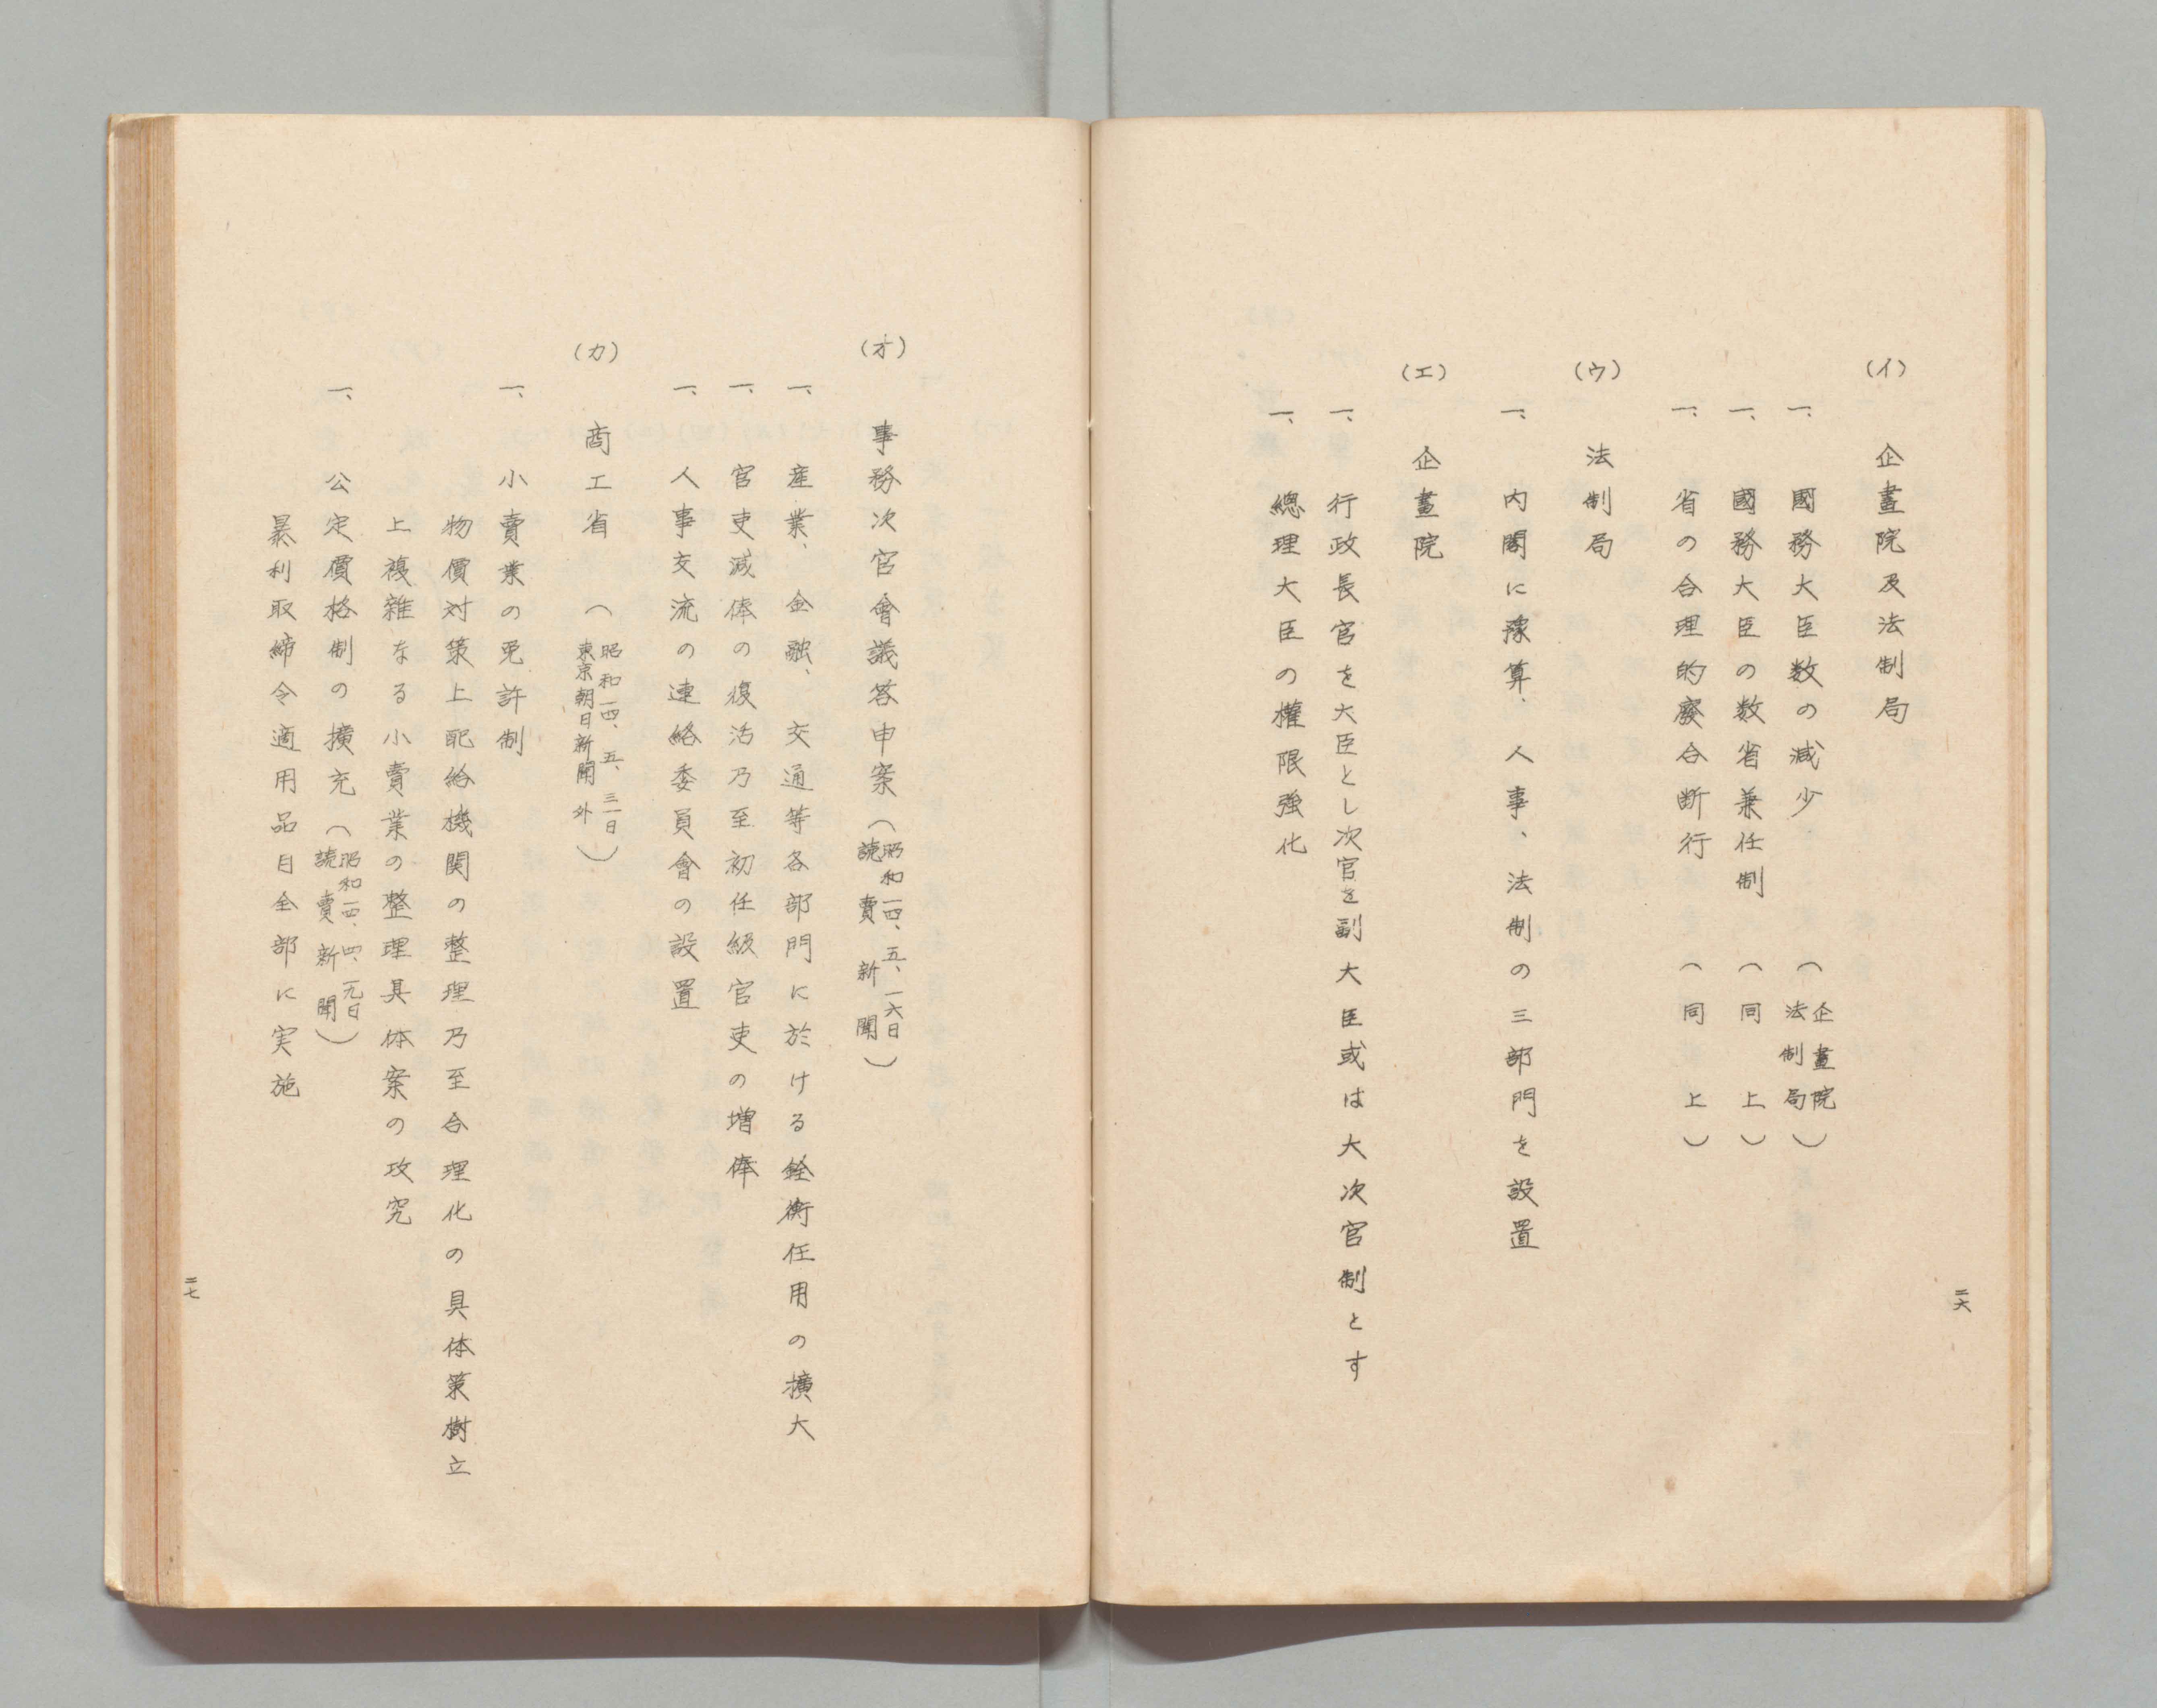 (イ)　企畫院及法制局
一、國務大臣数の減少（企畫院法制局）
一、國務大臣の数省兼任制（同上）
一、省の合理的廢合断行（同上）
(ウ)　法制局
一、内閣に豫算、人事、法制の三部門を設置
(エ)　企畫院
一、行政長官を大臣とし次官を副大臣或は大次官制とす
一、總理大臣の權限強化
二六
(オ)　事務次官會議答申案（昭和一四、五、一六日讀賣新聞）
一、産業、金融、交通等各部門に於ける銓衡任用の擴大
一、官吏減俸の復活乃至初任級官吏の増俸
一、人事交流の連絡委員會の設置
(カ)　商工省（昭和一四、五、三一日東京朝日新聞外）
一、小賣業の免許制
物價対策上配給機関の整理乃至合理化の具体策樹立
上複雜なる小賣業の整理具体案の攻究
一、公定價格制の擴充（昭和一四、四、一九日讀賣新聞）
暴利取締令適用品目全部に実施
二七